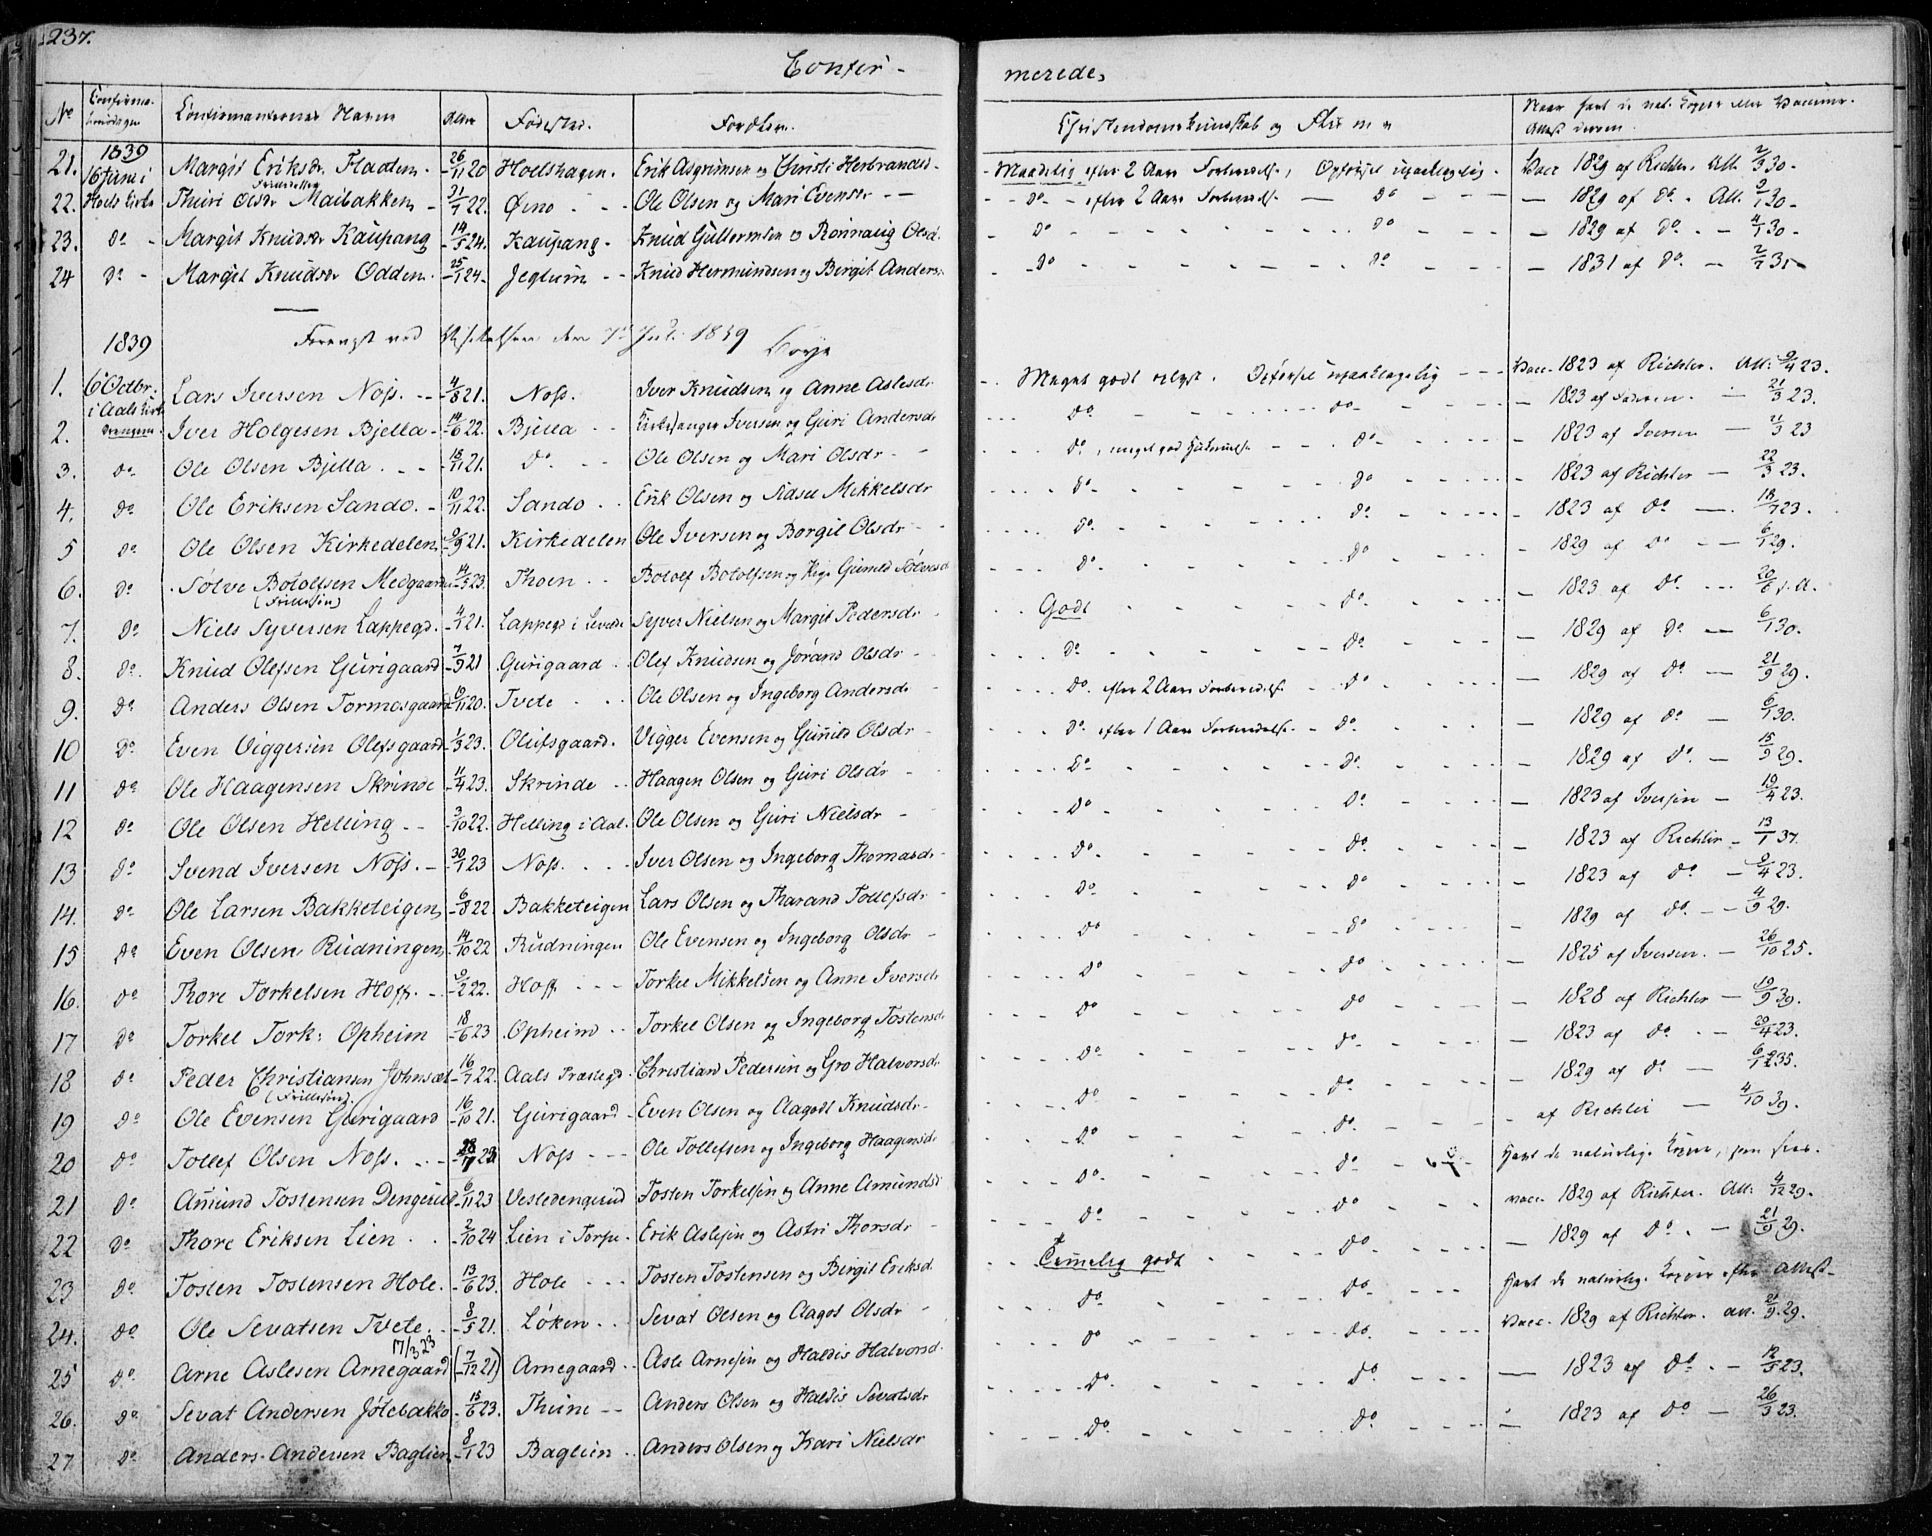 237.
Confir-
merede,
No
Confirmanternes Navne
Alder
Fødested.
Forældre.
Christendomskundskab og
Naar havt de nat. Kopper eller Vaccine.
Attest derom.
1839
21. 16 Juni i Margit Eriksdr Fladten. 26/11 20 Hoelshagen. Erik Asgrimsen og Christi Herbrandsd. - Maadelig efter 2 Aars Forberedelse, Opførsel upaaklagelig - Vacc 1829 af Richter. Att. 2/3 30 -
22. Hoels Kirke Thuri Olsdr Maibakken - 31/7 22. Øino - - Ole Olsen og Mari Evensdr - - - do - efter 2 Aars Forberedelse - do - - 1829 af do. Att. 2/1 30 -
23. do - Margit Knudsdr Kaupang 14/5 24. Kaupang - Knud Gullermsen og Rønnaug Olsd. - do - do - - 1829 af do. - 4/1 30 -
24 do - Margit Knudsdr Odden. 25/1 24. Jegtum - - Knud Hermundsen og Birgit Anders. - do - do - - 1831 af do - 2/7 31 -
1839 ved den 7de Juli 1839
1. 6 Octbr. Lars Iversen Noss. - - 4/8 21. Noss. Iver Knudsen og Anne Aslesdr - - Meget godt oplyst. Opførsel upaaklagelig - - - Vacc. 1823 af Richter. Att: 9/4 23.
i Aals Kirke
2. Drengene Iver Holgesen Bjella - 14/6 22. Bjella - - Kirkesanger Iversen og Guri Andersdr do - do - - 1823 af Faderen. - 21/3 23.
3. do Ole Olsen Bjella. - - 15/11 21. do - - Ole Olsen og Mari Olsdr - - do, meget god - do - - 1823 af Iversen - 21/3 23
4. do Ole Eriksen Sando. - 10/11 22. Sando - - Erik Olsen og Sidsel Mikkelsdr do - do - - 1823 af Richter - 22/3 23.
5 do Ole Olsen Kirkedelen 9/9 21. Kirkedelen Ole Iversen og Borgil Olsdr - do - do - - 1823 af do - 18/7 23.
6. do Sølve Botolfsen Medgaarden 14/5 23. Thoen - - Botolf Botolfsen og Pige Gunild Sølvesd do - do - - 1829 af do - - 6/1 29.
(Frillesøn)
7. do Niels Syversen Lappegd. 4/4 21. Lappegd i Leveld Syver Nielsen og Margit Pedersdr - Godt - do - - 1823 af do - - - 20/6 s. A.
8. do. Knud Olefsen Gurigaard 7/9 21 Gurigaard - Olef Knudsen og Jørand Olsdr - do - do - - 1829 af do - 6/1 30.
9. do Anders Olsen Tormosgaard 6/11 20. Tvete - - Ole Olsen og Ingeborg Andersdr - do. efter 2 Aars Forberedelse - do - - 1829 af do - 21/9 29.
10 do Even Viggersen Olefsgaard 1/3 23. Olufsgaard. Vigger Evensen og Gunild Olsdr - do. efter 1 Aars Forberedelse - do. - 1829 af do - 6/1 30.
11 do Ole Haagensen Skrinde 11/4 23. Skrinde - - Haagen Olsen og Guri Olsdr - do - do. - 1829 af do. - 15/9 29.
12 do Ole Olsen Helling - - 3/10 22. Helling i Aal. Ole Olsen og Guri Nielsdr - do - do - - 1823 af Iversen - 19/4 23.
13 do Svend Iversen Noss. - 30/7 23 Noss. - - Iver Olsen og Ingeborg Thomasdr - do - do - - 1823 af Richter - 13/1 37.
14. do Ole Larsen Bakketeigen 6/8 22. Bakketeigen Lars Olsen og Tharand Tollefsdr - do - do - - 1823 af do - 9/4 23.
15 do Even Olsen Rudningen 14/10 22 Rudningen Ole Evensen og Ingeborg Olsdr - do - do - - 1829 af do. - - 4/9 29.
16. do Thore Torkelsen Hoff. - - 9/2 22. Hoff - - - Torkel Mikkelsen og Anne Iversdr do - do - - 1825 af Iversen. - 26/10 25.
17 do Torkel Tork: Opheim 18/6 23 Opheim - - Torkel Olsen og Ingeborg Tostensd. do - do - - 1828 af Richter - 19/9 39.
18 do Peder Christiansen Johnsæt 16/7 22. Aals Præstegd. Christian Pedersen og Gro Halvorsdr do - do - - 1823 af do. - - 20/4 23.
(Frillesøn).
19 do Ole Evensen Gurigaard 16/10 21. Gurigaard - Even Olsen og Aagodt Knudsdr - do - do - - 1829 af do - 6/12 35.
20 do Tollef Olsen Noss. - - 28/11 23 Noss - - - Ole Tollefsen og Ingeborg Haagensd. do - do. - af Richter - 4/10 39.
21 do Amund Tostensen Dengerud 6/11 23 Vestedengerud Tosten Torkelsen og Anne Amundsd do - do - Havt de naturlige Kopper,
22 do Thore Eriksen Lien - - 2/10 24 Lien i Torpe. Erik Aslesen og Astri Thorsdr - do - do - vacc. 1829 af Richter. Att: 4/12 29.
23 do Tosten Tostensen Hole. 13/6 23. Hole - - - Tosten Tostensen og Birgit Eriksd. Temelig godt - do - - 1829 af do. - 21/9 29.
24. do Ole Sevatsen Tvete. - 8/5 21. Løken - - Sevat Olsen og Aagot Olsdr - do - do - Havt de naturlige Kopper efter Attest -
17/3 23
25 do Arne Aslesen Arnegaard (7/12 21) Arnegaard - - Asle Arnesen og Haldis Halvorsd. do - do. - Vacc. 1829 af Richter. Att. 21/9 29.
26. do Sevat Andersen Jøtebakke 15/6 23. Thune - - Anders Olsen og Haldis Sevatsdr do - do - - 1823 af do. - 12/5 23.
27 do Anders Andersen Baglien 8/1 23 Baglien - - Anders Olsen og Kari Nielsdr do - do - - 1823 af do - 26/3 23.